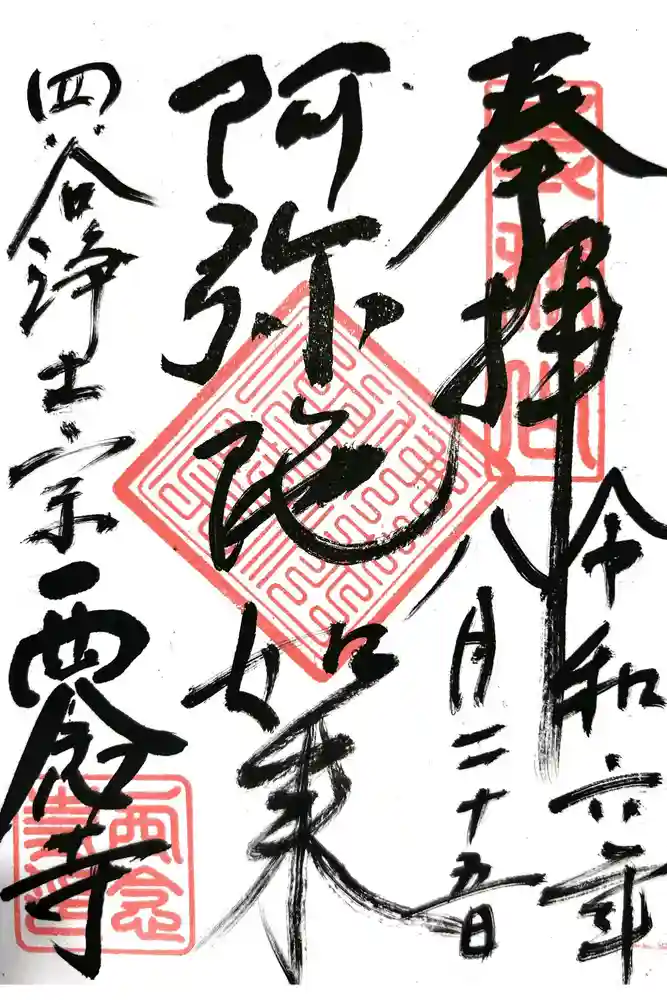 奉拝
令和六年
八月二十五日
阿弥陀如来
四谷浄土宗
西念寺